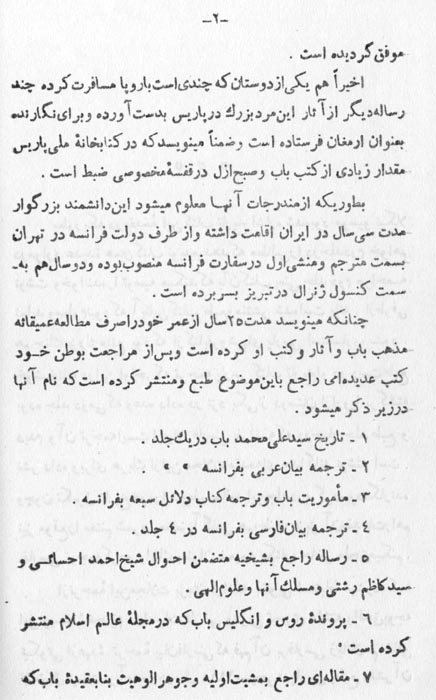 -۲-
موفق گردیده است .
اخیراً هم یکی از دوستان که چندی است باروپا مسافرت کرده چند
رساله دیگر از آثار این مرد بزرك در پاریس بدست آورده و برای نگارنده
بعنوان ارمغان فرستاده است وضمناً مینویسد که در کتابخانهٔ ملی پاریس
مقدار زیادی از کتب باب و صبح ازل در قفسهٔ مخصوصی ضبط است .
بطوریکه از مندرجات آنها معلوم میشود این دانشمند بزرگوار
مدت سی سال در ایران اقامت داشته و از طرف دولت فرانسه در تهران
بسمت مترجم و منشی اول در سفارت فرانسه منصوب بوده و دو سال هم به-
سمت کنسول ژنرال در تبریز بسر برده است .
چنانکه مینویسد مدت ۲۵ سال از عمر خود را صرف مطالعه عمیقانه
مذهب باب و آثار و کتب او کرده است و پس از مراجعت بوطن خود
کتب عدیده‌ای راجع باین موضوع طبع و منتشر کرده است که نام آنها
در زیر ذکر میشود .
۱ - تاریخ سید علی محمد باب در یك جلد .
۲ - ترجمه بیان عربی بفرانسه » » .
۳ - مأموریت باب و ترجمه کتاب دلائل سبعه بفرانسه .
۴ - ترجمه بیان فارسی بفرانسه در ۴ جلد .
۵ - رساله راجع بشیخیه متضمن احوال شیخ احمد احسائی و
سید کاظم رشتی و مسلك آنها و علوم الهی .
۶ - پروندهٔ روس و انگلیس باب که در مجلهٔ عالم اسلام منتشر
کرده است .
۷ - مقاله‌ای راجع بمشیت اولیه و جوهر الوهیت بنا بعقیدهٔ باب که